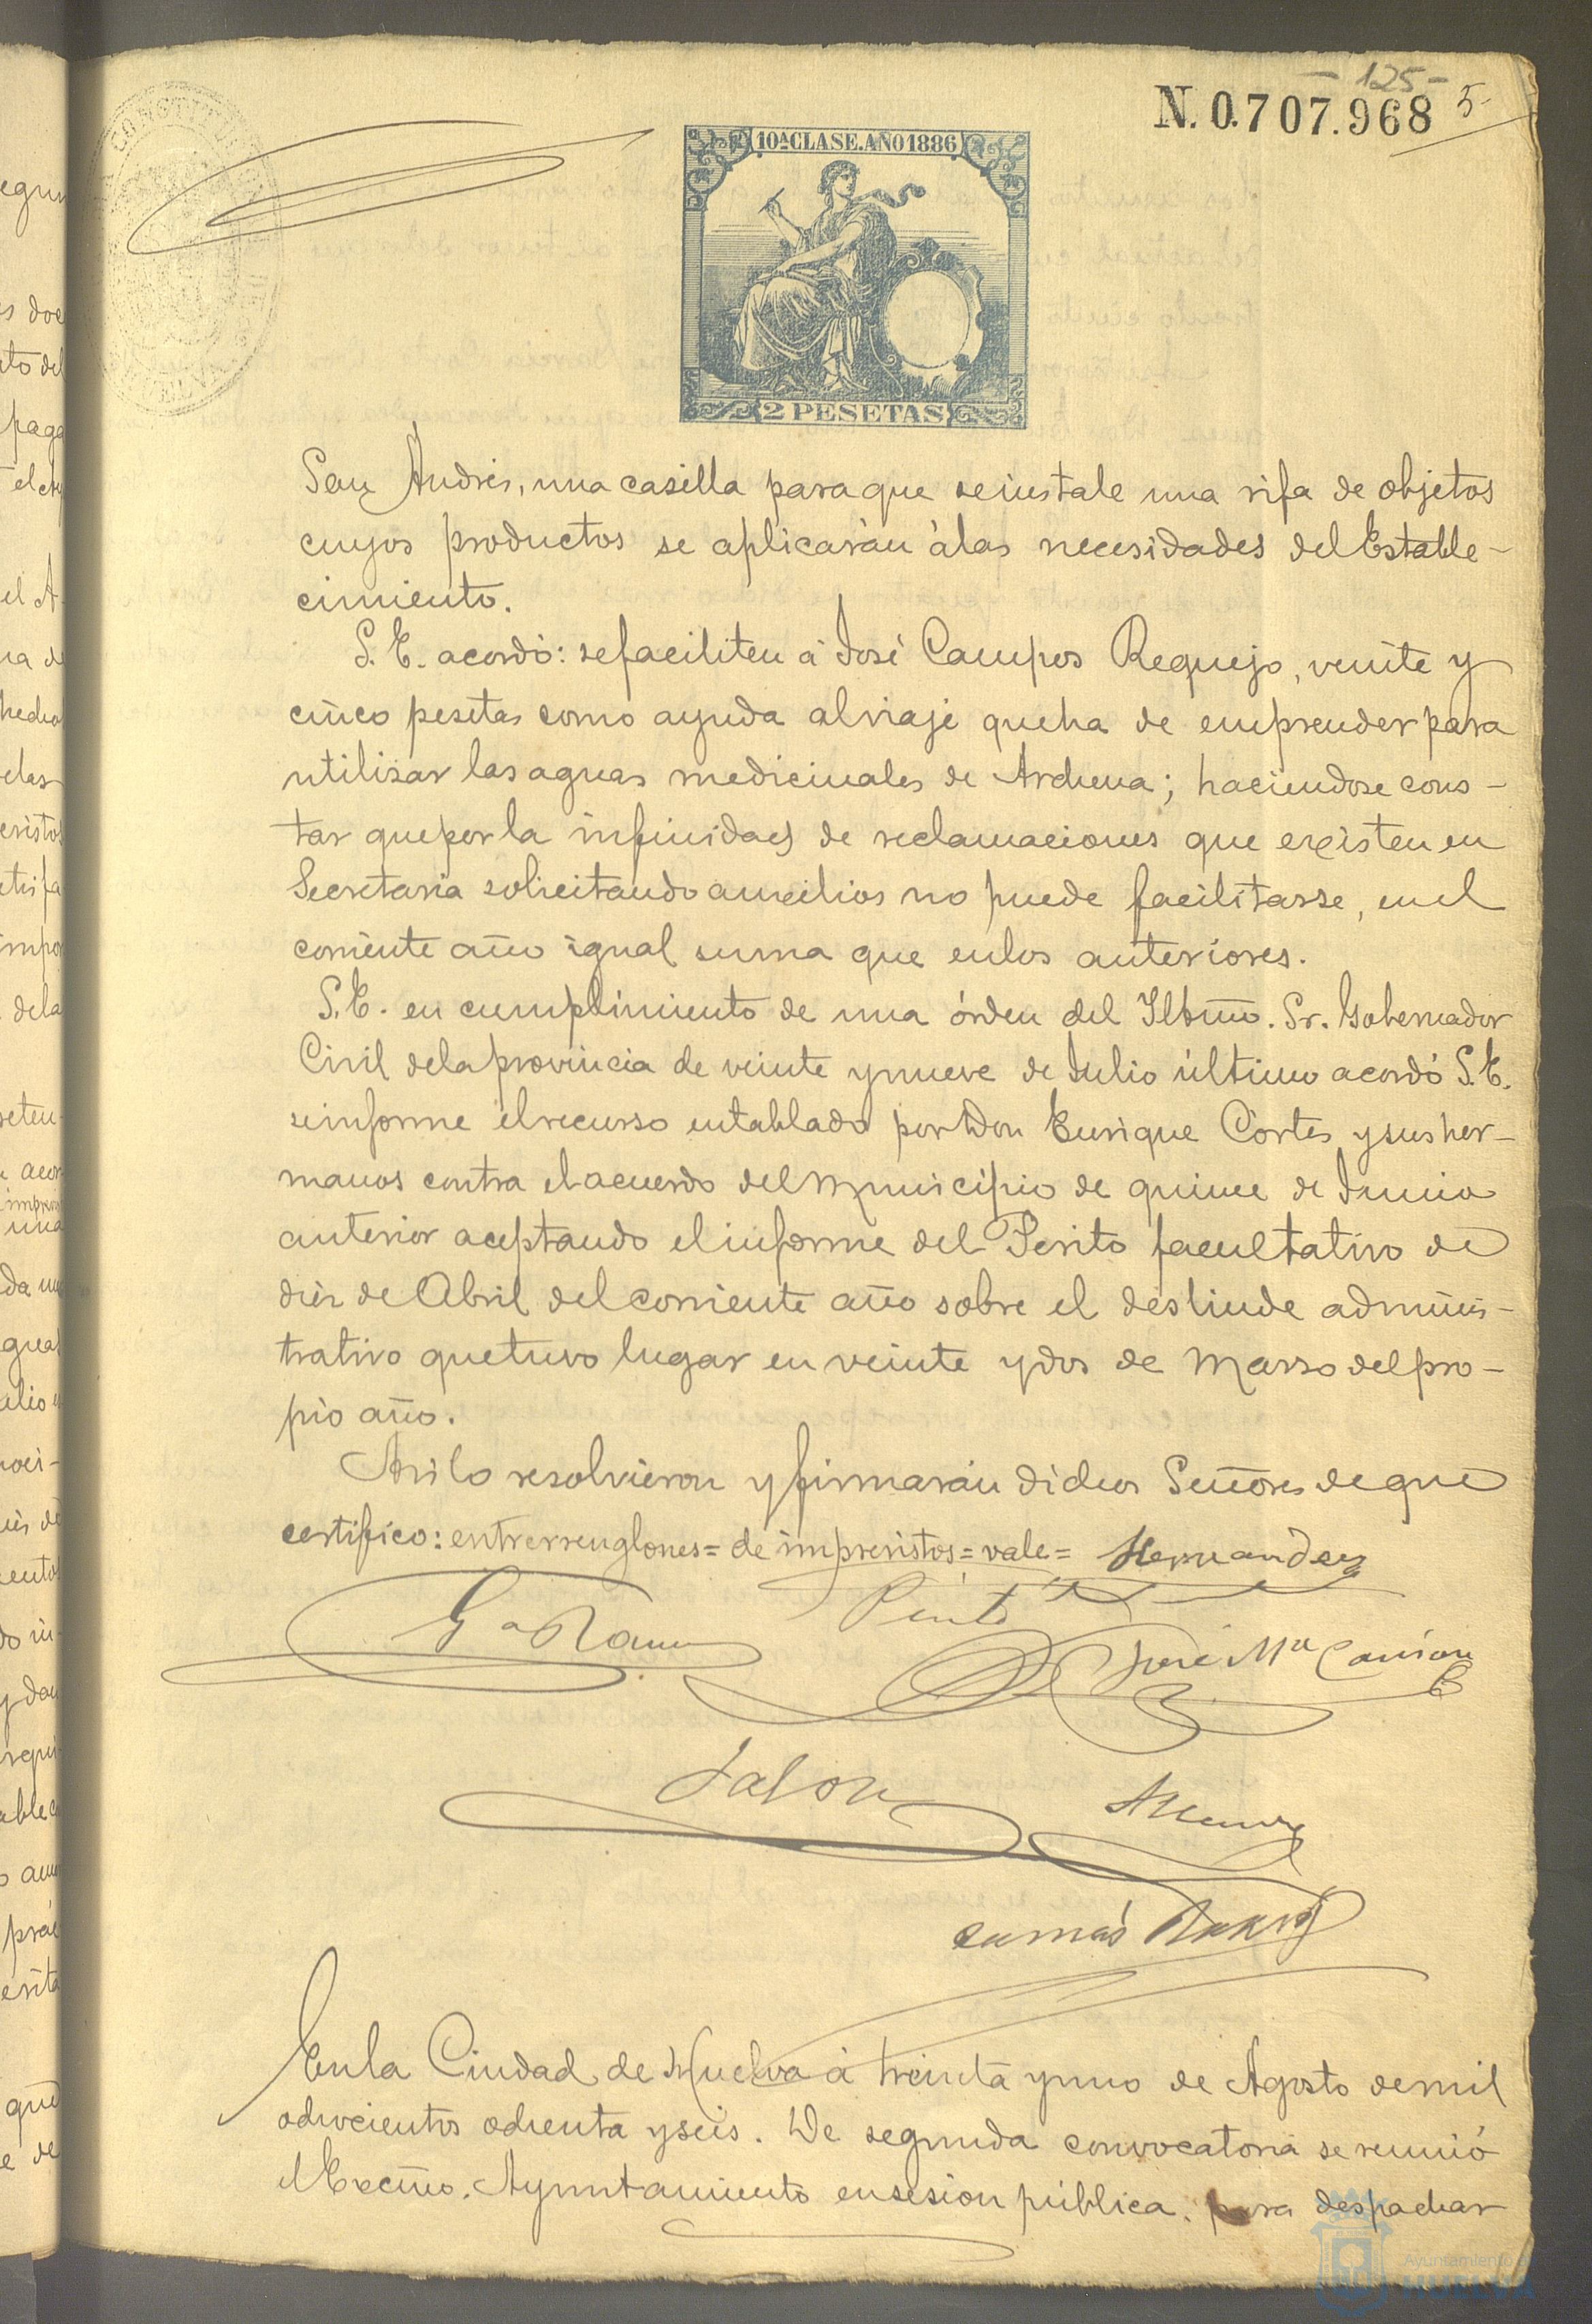 - 125 -
N. 0.707.968 5-
10ª CLASE. AÑO 1886
2 PESETAS
San Andrés, una casilla para que se instale una rifa de objetos
cuyos productos se aplicarán á las necesidades del Estable-
cimiento.
S. E. acordó: se faciliten á José Campos Requejo, veinte y
cinco pesetas como ayuda al viaje que ha de emprender para
utilizar las aguas medicinales de Archena; haciendose cons-
tar que por la infinidad de reclamaciones que existen en
Secretaria solicitando auxilios no puede facilitarse, en el
corriente año igual suma que en los anteriores.
S. E. en cumplimiento de una órden del Iltmo. Sr. Gobernador
Civil de la provincia de veinte y nueve de Julio último acordó S. E.
se informe el recurso entablado por Don Enrique Cortes y sus her-
manos contra el acuerdo del Municipio de quince de Junio
anterior aceptando el informe del Perito facultativo de
diez de Abril del corriente año sobre el deslinde adminis-
trativo que tuvo lugar en veinte y dos de Marzo del pro-
pio año.
Asi lo resolvieron y firmarán dichos Señores de que
certifico: entrerrenglones = de imprevistos = vale = Hernandez
Pinto
José Mª
Jalon
En la Ciudad de Huelva á treinta y uno de Agosto de mil
ochocientos ochenta y seis. De segunda convocatoria se reunió
el Excmo. Ayuntamiento en sesion pública, para despachar
Ayuntamiento de
HUELVA